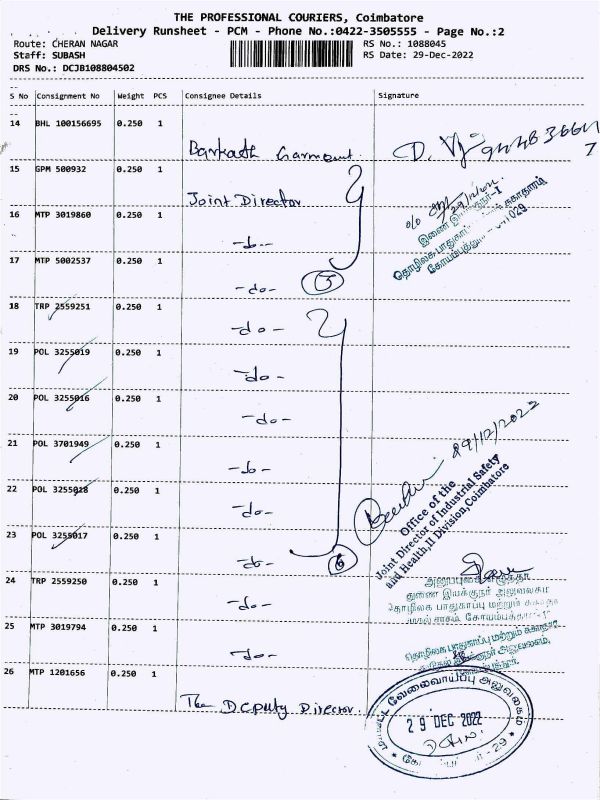 THE PROFESSIONAL COURIERS, Coimbatore
Delivery Runsheet - PCM - Phone No.:0422-3505555 - Page No.:2
Route: CHERAN NAGAR RS No.: 1088045
Staff: SUBASH RS Date: 29-Dec-2022
DRS No.: DCJB108804502
S No Consignment No Weight PCS Consignee Details Signature
14 BHL 100156695 0.250 1
Barkath Garment.
15 GPM 500932 0.250 1
Joint Director
16 MTP 3019860 0.250 1
-do-
17 MTP 5002537 0.250 1
-do- 5
18 TRP 2559251 0.250 1
-do-
19 POL 3255019 0.250 1
-do-
20 POL 3255016 0.250 1
-do-
21 POL 3701949 0.250 1
-do- 29/12/2022
22 POL 3255018 0.250 1
-do-
Office of the
Joint Director of Industrial Safety
and Health, II Division, Coimbatore
23 POL 3255017 0.250 1
-do- 6
24 TRP 2559250 0.250 1
-do-
துணை இயக்குநர் அலுவலகம்
தொழிலக பாதுகாப்பு மற்றும்
25 MTP 3019794 0.250 1
-do-
தொழிலக பாதுகாப்பு மற்றும் சுகாதார
26 MTP 1201656 0.250 1
The Deputy Director.
மாவட்ட வேலைவாய்ப்பு அலுவலகம்
29 DEC 2022